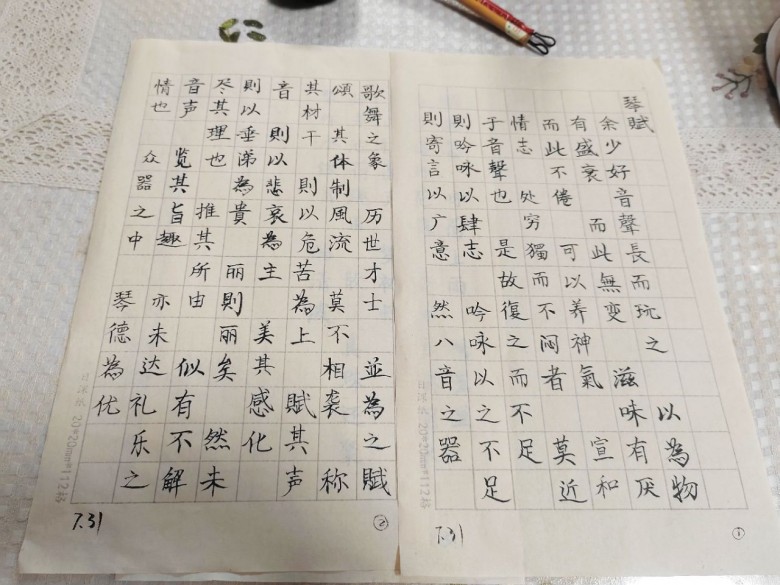 琴賦
余少好音聲 長而玩之 以為物
有盛衰 而此無变 滋味有厌
而此不倦 可以养神氣 宣和
情志 处穷獨而不闷者 莫近
于音聲也 是故復之而不足
則吟咏以肆志 吟咏以之不足
則寄言以广意 然八音之器
7.31
①
歌舞之象 历世才士 並為之賦
頌 其体制風流 莫不相袭 称
其材干 則以危苦為上 賦其声
音 則以悲哀為主 美其感化
則以垂涕為貴 丽則丽矣 然未
尽其理也 推其所由 似有不解
音声 览其旨趣 亦未达礼乐之
情也 众器之中 琴德為优
7.31
②
20*20mm*112格
20*20mm*112格